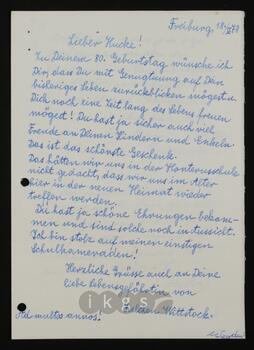 Freiburg, 18.
Lieber Hucke!
Zu Deinem 80. Geburtstag wünsche ich
Dir, dass Du mit Genugtuung auf Dein
bisheriges Leben zurückblicken mögest u.
Dich noch eine Zeit lang des Lebens freuen
mögest! Du hast ja sicher auch viel
Freude an Deinen Kindern und Enkeln.
Das ist das schönste Geschenk.
Das hätten wir uns in der Honterusschule
nicht gedacht, dass wir uns im Alter
hier in der neuen Heimat wieder
treffen werden.
Du hast ja schöne Ehrungen bekom-
men und sind solche noch in Aussicht.
Ich bin stolz auf meinen einstigen
Schulkameraden!
Herzliche Grüsse auch an Deine
liebe Lebensgefährtin von
ikgs
Wittstock.
Ad multos annos!